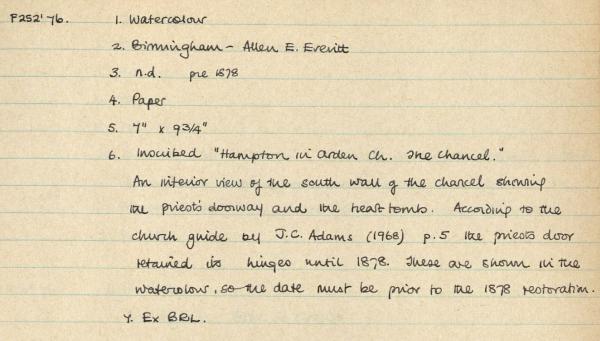 F252'76. 1. Watercolour
2. Birmingham - Allen E. Everitt
3. n.d. pre 1878
4. Paper
5. 7" x 9 3/4"
6. Inscribed "Hampton in Arden Ch. The Chancel."
An interior view of the south wall of the chancel showing
the priest's doorway and the heart tomb. According to the
church guide by J.C. Adams (1968) p.5 the priests door
retained its hinges until 1878. These are shown in the
watercolour, so the date must be prior to the 1878 restoration.
7. Ex BRL.